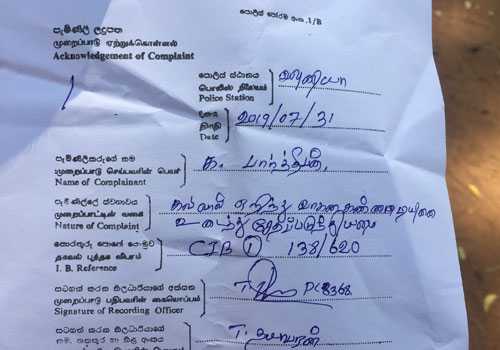 පොලිස් පෝරම අංක .1/B
පැමිණිලි ලදුපත
முறைப்பாடு ஏற்றுக்கொள்ளல்
Acknowledgement of Complaint
පොලිස් ස්ථානය
பொலிஸ் நிலையம்
Police Station
வவுனியா
දිනය
திகதி
Date
2019/07/31
පැමිණිලිකරුගේ නම
முறைப்பாடு செய்பவரின் பெயர்
Name of Complainant
க. பார்த்தீபன்
පැමිණිල්ලේ ස්වභාවය
முறைப்பாட்டின் வகை
Nature of Complaint
கல்லால் எறிந்து வாகன கண்ணாடியினை
உடைத்து
තොරතුරු පොතේ යොමුව
தகவல் புத்தக விபரம்
I. B. Reference
CIB 1 138/620
සටහන් කරන නිලධාරියාගේ අත්සන
முறைப்பாடு பதிபவரின் கையொப்பம்
Signature of Recording Officer
PC 8368
සටහන් කරන නිලධාරියාගේ
නම, තනතුර හා නිල අංකය
T.